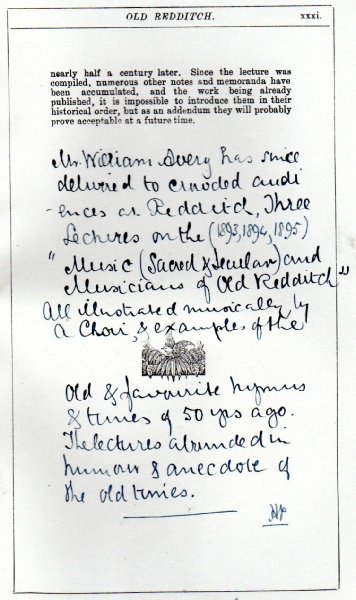 OLD REDDITCH. xxxi.
nearly half a century later. Since the lecture was
compiled, numerous other notes and memoranda have
been accumulated, and the work being already
published, it is impossible to introduce them in their
historical order, but as an addendum they will probably
prove acceptable at a future time.
Mr. William Avery has since
delivered to crowded audi
-ences at Redditch, Three
Lectures on the (1893, 1894, 1895)
"Music (Sacred & Secular) and
Musicians of Old Redditch"
All illustrated musically by
a Choir, & examples of the
Old & favourite hymns
& tunes of 50 yrs ago.
The lectures abounded in
humour & anecdote of
the old times.